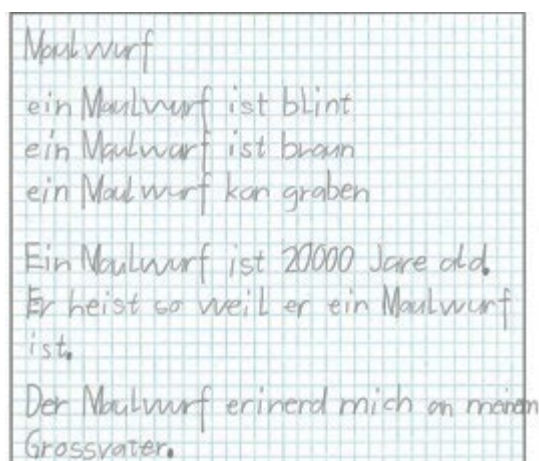 Maulwurf
ein Maulwurf ist blint
ein Maulwurf ist braun
ein Maulwurf kan graben
Ein Maulwurf ist 20000 Jare old.
Er heist so weil er ein Maulwurf
ist.
Der Maulwurf erinerd mich an meinen
Grossvater.